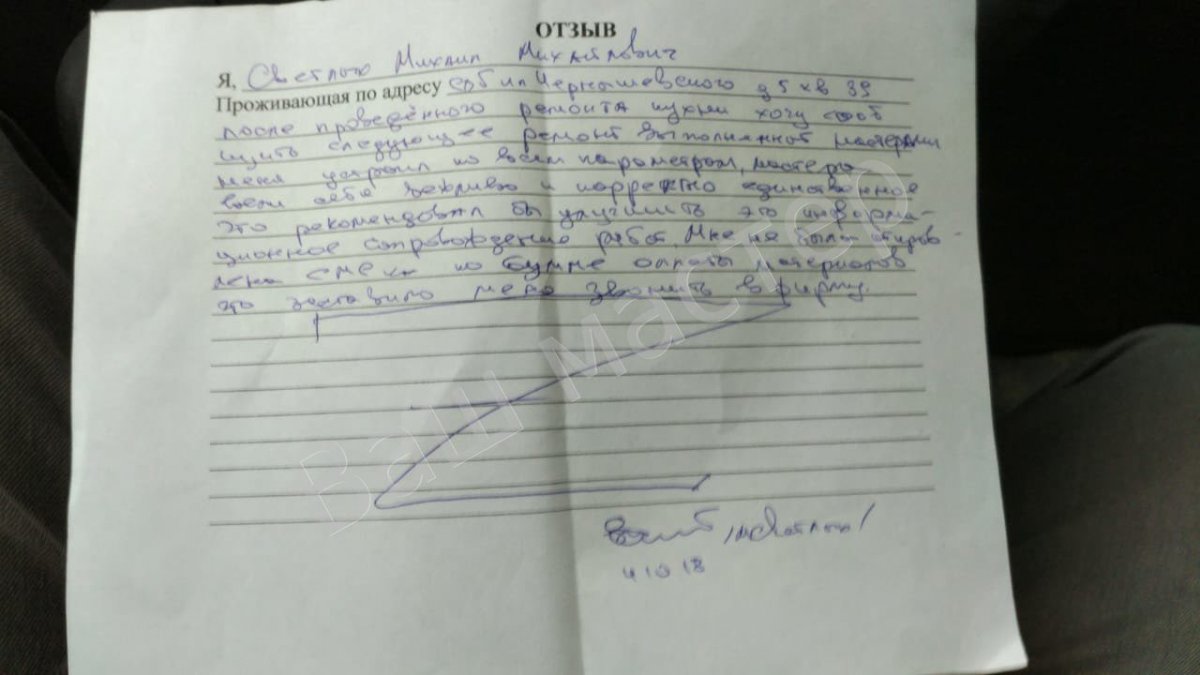 ОТЗЫВ
Я, Светлою Михаил Михайлович
Проживающая по адресу спб пл Чернышевского д 5 кв 39
после проведённого ремонта кухни хочу сооб
щить следующее ремонт выполнянной мастерами
меня устроил по всем параметром, мастера
вели себя вежливо и корректно единственное
это рекомендовал бы улучшить это информа-
ционное сопровождение работ. Мне не была
лена смета по оплаты материалов
это заставило меня звонить в фирму.
4 10 18
Ваш мастер